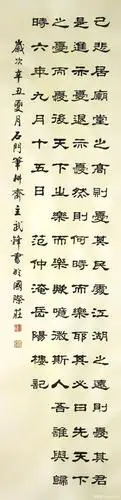 己悲居廟堂之高則憂其民處江湖之遠則憂其君
是進亦憂退亦憂然則何時而樂耶其必曰先天下
之憂而憂後天下之樂而樂歟噫微斯人吾誰與歸
時六年九月十五日 范仲淹岳陽樓記
歲次辛丑夏月石門筆耕齋主武鋒書於國際莊